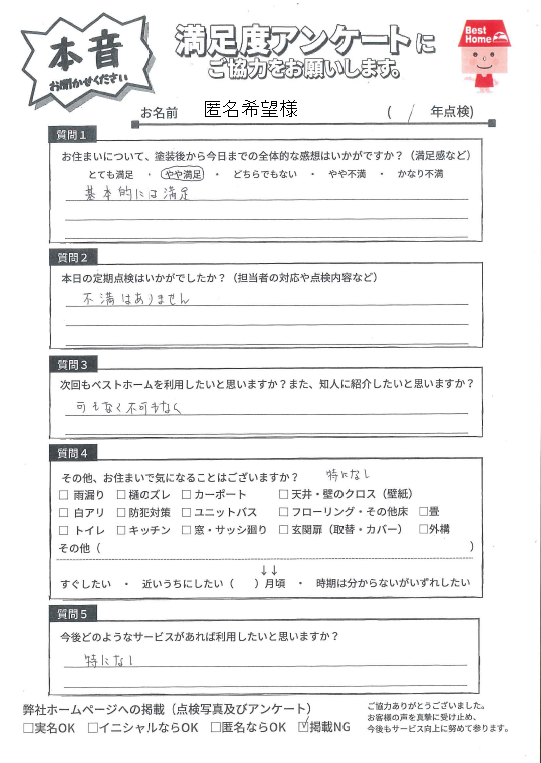 本音
お聞かせください
満足度アンケートに
ご協力をお願いします。
Best
Home
お名前 匿名希望様 ( / 年点検)
質問1
お住まいについて、塗装後から今日までの全体的な感想はいかがですか？（満足感など）
とても満足 ・ やや満足 ・ どちらでもない ・ やや不満 ・ かなり不満
基本的には満足
質問2
本日の定期点検はいかがでしたか？（担当者の対応や点検内容など）
不満はありません
質問3
次回もベストホームを利用したいと思いますか？また、知人に紹介したいと思いますか？
可もなく不可もなく
質問4
その他、お住まいで気になることはございますか？ 特になし
□ 雨漏り □ 樋のズレ □ カーポート □ 天井・壁のクロス（壁紙）
□ 白アリ □ 防犯対策 □ ユニットバス □ フローリング・その他床 □畳
□ トイレ □ キッチン □ 窓・サッシ廻り □ 玄関扉（取替・カバー） □外構
その他（ ）
↓↓
すぐしたい ・ 近いうちにしたい（ ）月頃 ・ 時期は分からないがいずれしたい
質問5
今後どのようなサービスがあれば利用したいと思いますか？
特になし
弊社ホームページへの掲載（点検写真及びアンケート）
□実名OK □イニシャルならOK □匿名ならOK ☑掲載NG
ご協力ありがとうございました。
お客様の声を真摯に受け止め、
今後もサービス向上に努めて参ります。